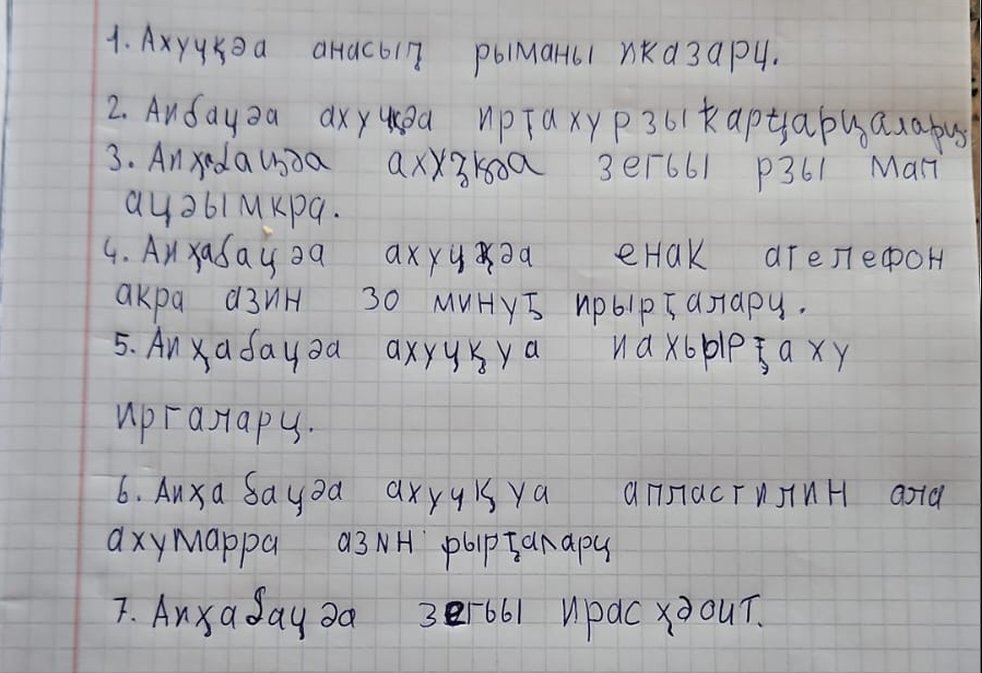 1. Ахуҷқәа анасыҧ рыманы иқазарц.
2. Аибацәа ахуҷқәа иртахурзы ҟарҵарцаларц.
3. Аиҳабацәа ахуҷқәа зегьы рзы мап
ацәымкра.
4. Аиҳабацәа ахуҷқәа енак ателефон
акра азин 30 минуҭ ирырҭаларц.
5. Аиҳабацәа ахуҷқуа иахьырҭаху
иргаларц.
6. Аиҳабацәа ахуҷқуа апластилин ала
ахумарра азин рырҭаларц
7. Аиҳабацәа зегьы ирасҳәоит.